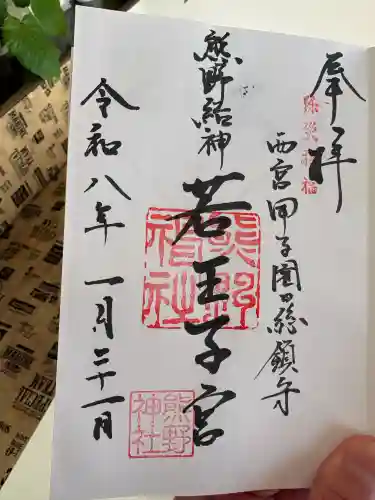 奉拝
除災招福
西宮甲子園口総鎮守
熊野結神
若王子宮
熊野神社
令和八年一月二十一日